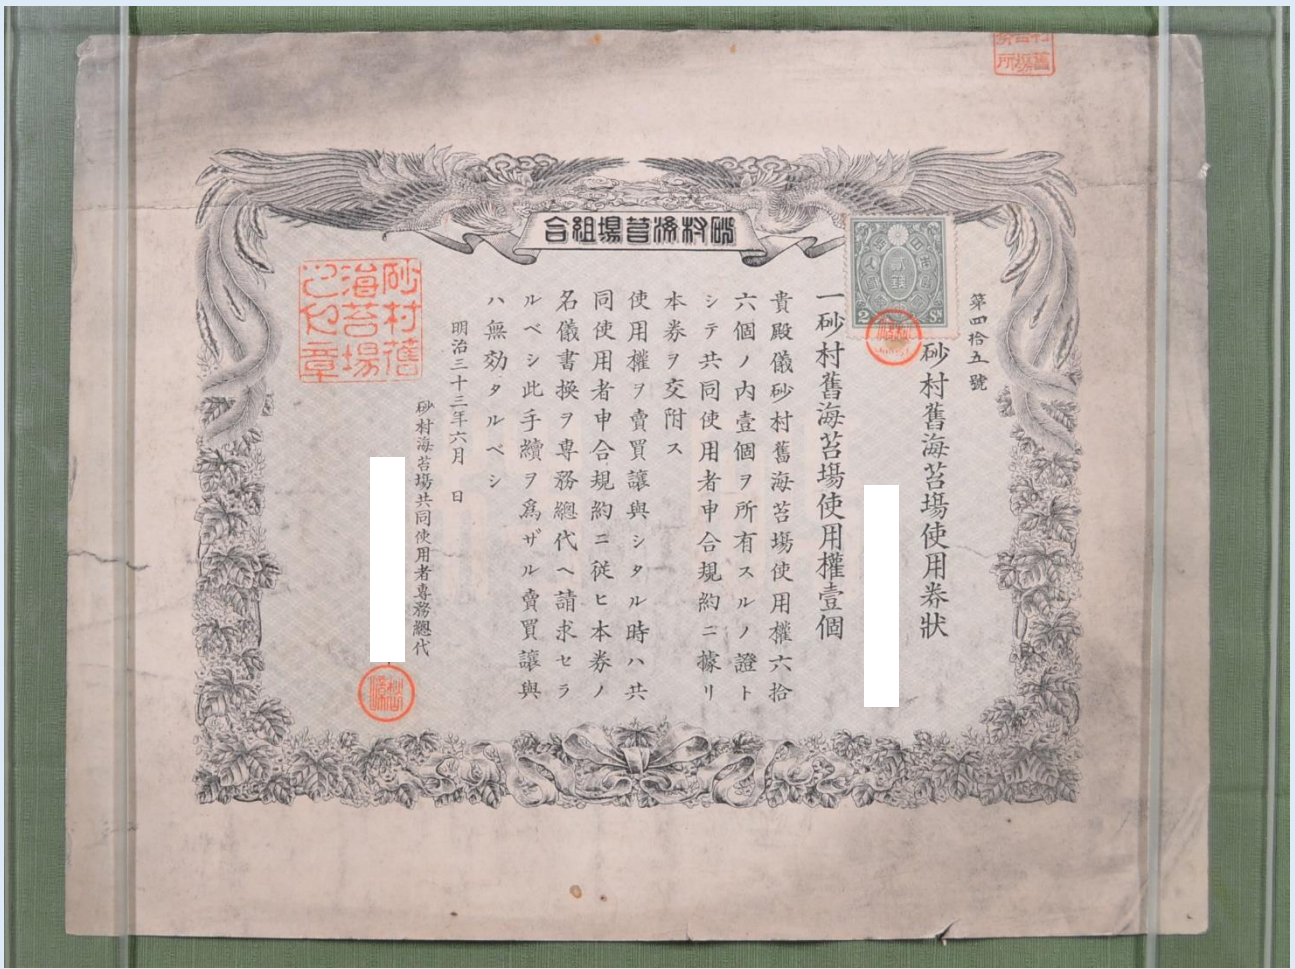 砂村海苔場組合
第四拾五號
砂村舊海苔場使用券狀
一砂村舊海苔場使用權壹個
貴殿儀砂村舊海苔場使用權六拾
六個ノ内壹個ヲ所有スルノ證ト
シテ共同使用者申合規約ニ據リ
本券ヲ交附ス
使用權ヲ賣買讓與シタル時ハ共
同使用者申合規約ニ従ヒ本券ノ
名儀書換ヲ専務總代ヘ請求セラ
ルベシ此手續ヲ爲ザル賣買讓與
ハ無効タルベシ
明治三十三年六月 日
砂村海苔場共同使用者専務總代
砂村舊
海苔場
之印章
2 Sn